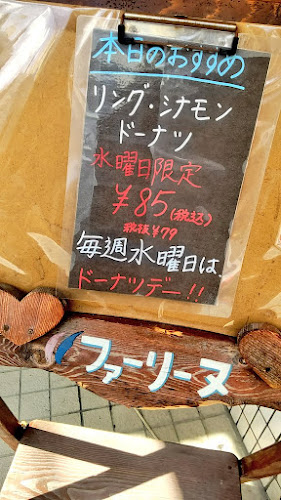 本日のおすすめ
リング・シナモン
ドーナツ
水曜日限定
¥85(税込)
税抜¥79
毎週水曜日は、
ドーナツデー!!
ファーリーヌ